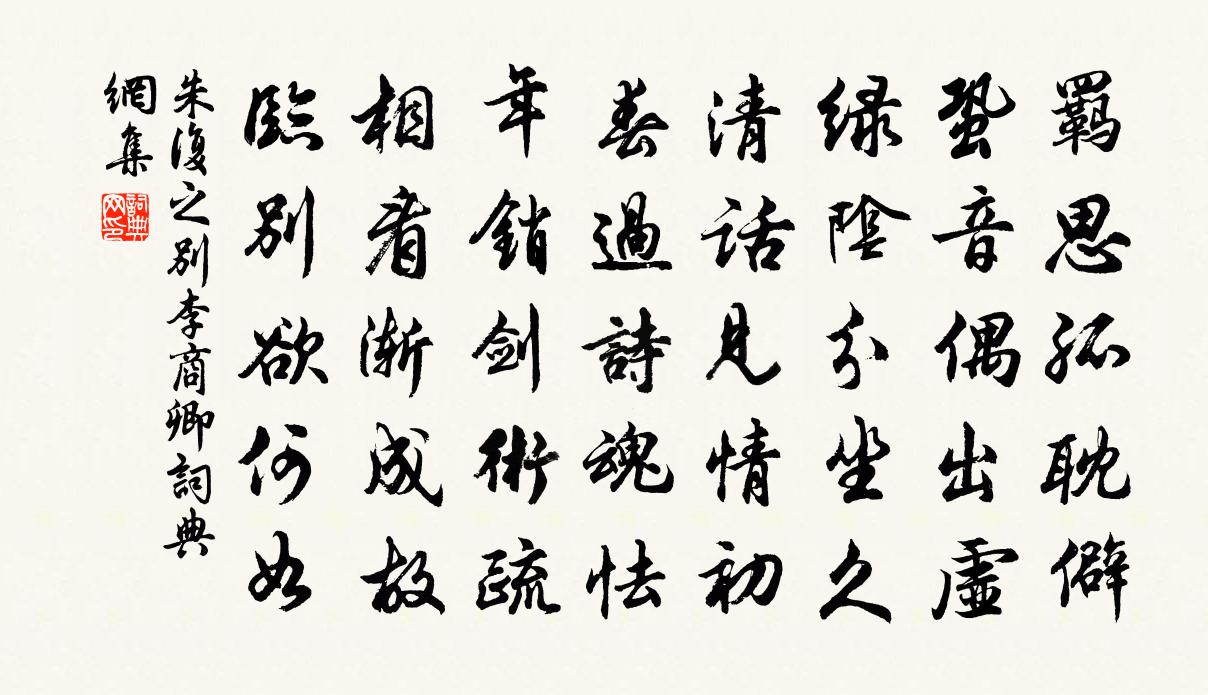 羈思孤耽僻
蛩音偶出虛
綠陰分坐久
清話見情初
春過詩魂怯
年銷劍術疏
相看漸成故
臨別欲何如
朱復之別李商卿詞典
網集
詞典网印